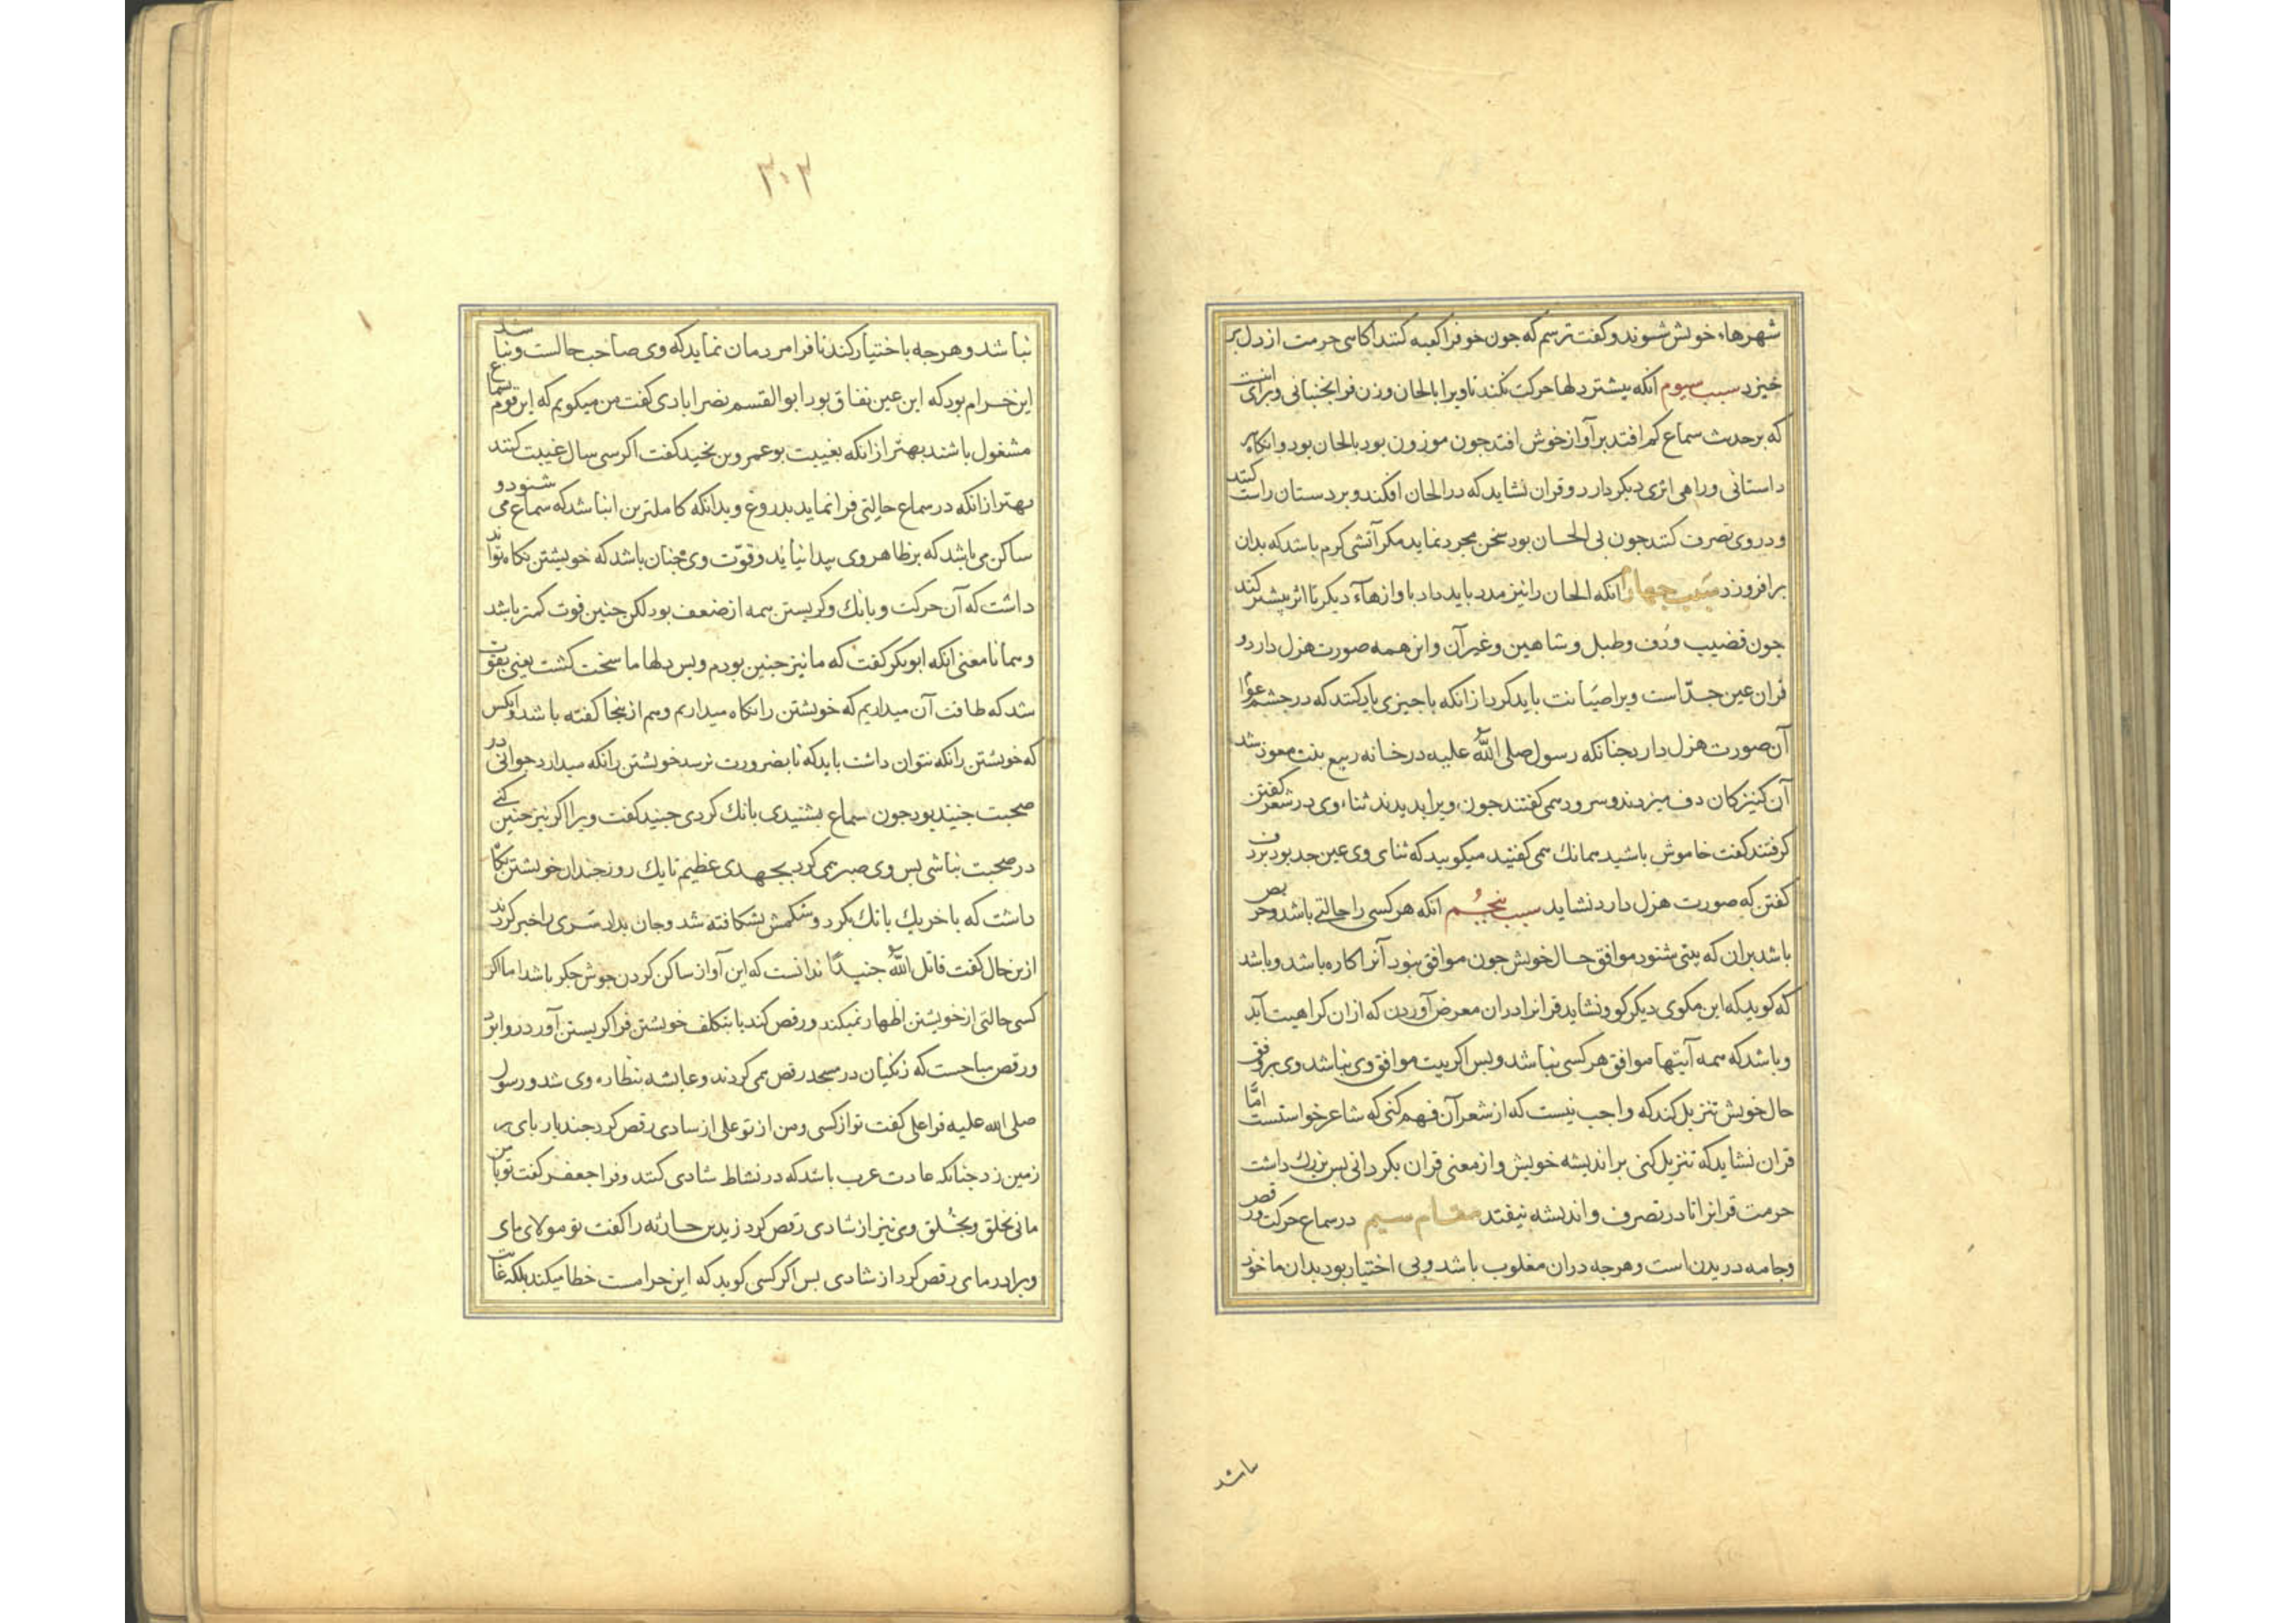 شهرهاء خویش شوند و کفت ترسم که جون خو فرا کعبه کنند انکاسی حرمت از دل بر
خیزد سبب سیوم انکه بیشتر دلها حرکت نکند تا ویرا بالحان و زن فرا نجنبانی و برای اینست
که بر حدیث سماع کم افتد بر آواز خوش افتد جون موزون بود بالحان بود و انکاه هر
داستانی و راهی اثری دیکر دارد و قران نشاید که در الحان افکند و بر دستان راست کنند
و در وی تصرف کنند جون بی الحان بود سخن مجرد نماید مکر آتشی کرم باشد که بدان
برافروزد سبب جهارم انکه الحان را نیز مدد باید داد باوازهاء دیکر تا اثر بیشتر کند
جون قضیب و دف و طبل و شاهین و غیر آن و این همه صورت هزل دارد و
قران عین جدّ است ویرا صیانت باید کرد از انکه با جیزی یار کنند که در جشم عوام
آن صورت هزل دارد جنانکه رسول صلی الله علیه در خانه ربیع بنت معوذ شد
آن کنیزکان دف میزدند و سرود می کفتند جون ویرا بدیدند ثناء وی در شعر کفتن
کرفتند کفت خاموش باشید همانک می کفتید میکویید که ثنای وی عین جد بود بر دف
کفتن که صورت هزل دارد نشاید سبب بنجم انکه هر کسی را حالتی باشد و حریص
باشد بران که بیتی شنود موافق حال خویش جون موافق نبود آنرا کاره باشد و باشد
که کوید که این مکوی دیکر کو و نشاید قرانرا دران معرض آوردن که ازان کراهیت آید
و باشد که همه آیتها موافق هر کسی نباشد و بس اکر بیت موافق وی نباشد وی بر وفق
حال خویش تنزیل کند که واجب نیست که از شعر آن فهم کنی که شاعر خواستست امّا
قران نشاید که تنزیل کنی بر اندیشه خویش و از معنی قران بکردانی بس بزرك داشت
حرمت قرانرا تا در تصرف و اندیشه نیفتد مقام سیم در سماع حرکت و رقص
و جامه دریدن است و هرجه دران مغلوب باشد و بی اختیار بود بدان ماخوذ
باشد
۳۰۳
نباشد و هرجه باختیار کند تا فرا مردمان نماید که وی صاحب حالست و نباشد
این حرام بود که این عین نفاق بود ابو القسم نصرابادی کفت من میکویم که این قوم بسماع
مشغول باشند بهتر از انکه بغیبت بوعمرو بن نجید کفت اکر سی سال غیبت کنند
بهتر از انکه در سماع حالتی فرا نماید بدروغ و بدانکه کاملترین انباشد که سماع می شنود و
ساکن می باشد که بر ظاهر وی پیدا نیاید و قوّت وی جنان باشد که خویشتن نکاه تواند
داشت که آن حرکت و بانك و کریستن همه از ضعف بود لکن جنین قوت کمتر باشد
و همانا معنی انکه ابوبکر کفت که ما نیز جنین بودم و بس دلها ما سخت کشت یعنی بقوت
شد که طاقت آن میداریم که خویشتن را نکاه میداریم و هم ازینجا کفته باشد و انکس
که خویشتن را نکه نتوان داشت باید که تا بضرورت نرسد خویشتن را نکه میدارد جوانی در
صحبت جنید بود جون سماع بشنیدی بانك کردی جنید کفت ویرا اکر نیز جنین کنی
در صحبت نباشی بس وی صبر همی کرد بجهدی عظیم تا یك روز جندان خویشتن نکاه
داشت که باخر یك بانك بکرد و شکمش بشکافته شد و جان بداد سری را خبر کردند
ازین حال کفت قاتل الله جنیدًا ندانست که این آواز ساکن کردن جوش جکر باشد اما اکر
کسی حالتی از خویشتن اظهار نمیکند و رقص کند یا بتکلف خویشتن فرا کریستن آورد روا بود
و رقص مباحست که زنکیان در مسجد رقص همی کردند و عایشه بنظاره وی شد و رسول
صلی الله علیه فرا علی کفت تو از کسی و من از تو علی از شادی رقص کرد جند بار پای بر
زمین زد جنانکه عادت عرب باشد که در نشاط شادی کنند و فرا جعفر کفت تو با من
مانی بخلق و بخُلق وی نیز از شادی رقص کرد زید بن حارثه را کفت تو مولای مای
و برادر مای رقص کرد از شادی بس اکر کسی کوید که این حرامست خطا میکند بلکه غایت